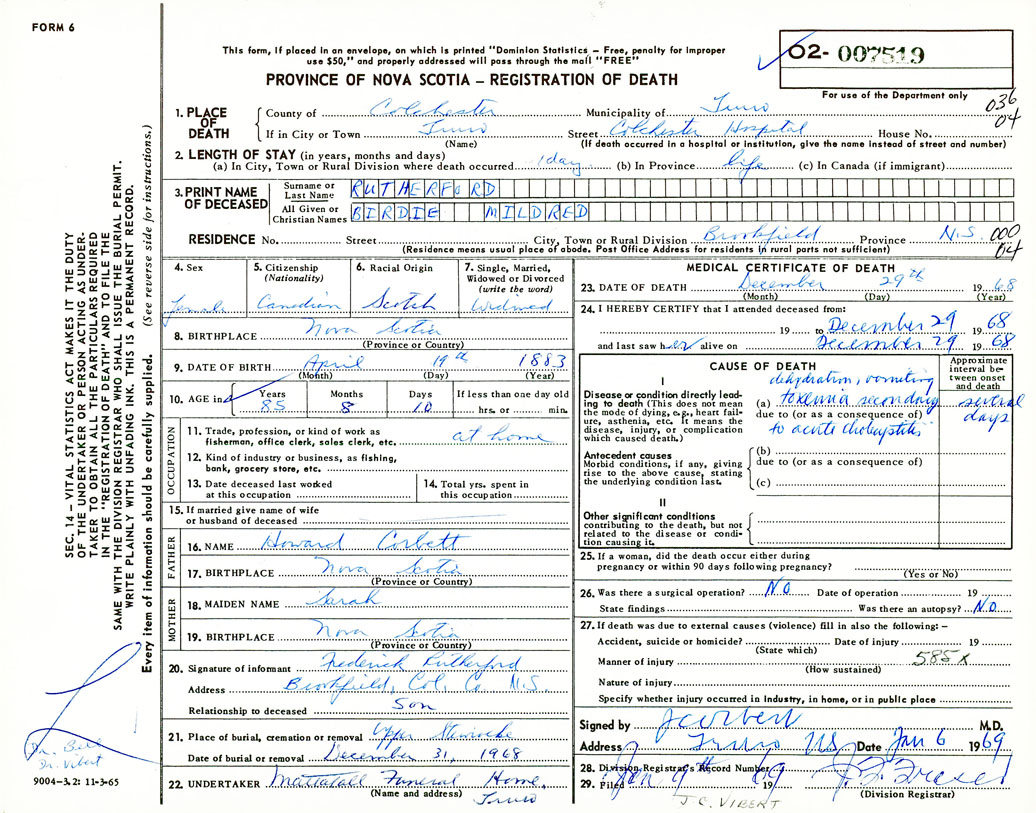 FORM 6
This form, if placed in an envelope, on which is printed "Dominion Statistics – Free, penalty for improper
use $50," and properly addressed will pass through the mail "FREE"
PROVINCE OF NOVA SCOTIA – REGISTRATION OF DEATH
02- 007519
For use of the Department only
036
04
SEC. 14 – VITAL STATISTICS ACT MAKES IT THE DUTY
OF THE UNDERTAKER OR PERSON ACTING AS UNDER-
TAKER TO OBTAIN ALL THE PARTICULARS REQUIRED
IN THE "REGISTRATION OF DEATH" AND TO FILE THE
SAME WITH THE DIVISION REGISTRAR WHO SHALL ISSUE THE BURIAL PERMIT.
WRITE PLAINLY WITH UNFADING INK. THIS IS A PERMANENT RECORD.
Every item of information should be carefully supplied. (See reverse side for instructions.)
1. PLACE OF DEATH
County of Colchester Municipality of Truro
If in City or Town Truro Street Colchester Hospital House No.
(Name) (If death occurred in a hospital or institution, give the name instead of street and number)
2. LENGTH OF STAY (in years, months and days)
(a) In City, Town or Rural Division where death occurred 1 day (b) In Province life (c) In Canada (if immigrant)
3. PRINT NAME OF DECEASED
Surname or Last Name RUTHERFORD
All Given or Christian Names BIRDIE MILDRED
RESIDENCE No. Street City, Town or Rural Division Brookfield Province N.S. 000
04
(Residence means usual place of abode. Post Office Address for residents in rural parts not sufficient)
4. Sex
Female
5. Citizenship
(Nationality)
Canadian
6. Racial Origin
Scotch
7. Single, Married,
Widowed or Divorced
(write the word)
Widowed
8. BIRTHPLACE Nova Scotia
(Province or Country)
9. DATE OF BIRTH April 19th 1883
(Month) (Day) (Year)
10. AGE in
Years Months Days If less than one day old
85 8 10 hrs. or min.
OCCUPATION
11. Trade, profession, or kind of work as
fisherman, office clerk, sales clerk, etc. at home
12. Kind of industry or business, as fishing,
bank, grocery store, etc.
13. Date deceased last worked
at this occupation
14. Total yrs. spent in
this occupation
15. If married give name of wife
or husband of deceased
FATHER
16. NAME Howard Corbett
17. BIRTHPLACE Nova Scotia
(Province or Country)
MOTHER
18. MAIDEN NAME Sarah
19. BIRTHPLACE Nova Scotia
(Province or Country)
20. Signature of informant Frederick Rutherford
Address Brookfield, Col. Co. N.S.
Relationship to deceased Son
21. Place of burial, cremation or removal Upper Stewiacke
Date of burial or removal December 31, 1968
22. UNDERTAKER Mattatall Funeral Home,
(Name and address) Truro
MEDICAL CERTIFICATE OF DEATH
23. DATE OF DEATH December 29th 1968
(Month) (Day) (Year)
24. I HEREBY CERTIFY that I attended deceased from:
19 to December 29 1968
and last saw her alive on December 29 1968
CAUSE OF DEATH
Approximate
interval be-
tween onset
and death
I
Disease or condition directly lead-
ing to death (This does not mean
the mode of dying, e.g., heart fail-
ure, asthenia, etc. It means the
disease, injury, or complication
which caused death.)
dehydration, vomiting
(a) toxemia secondary
due to (or as a consequence of)
to acute cholecystitis
several
days
Antecedent causes
Morbid conditions, if any, giving
rise to the above cause, stating
the underlying condition last.
(b)
due to (or as a consequence of)
(c)
II
Other significant conditions
contributing to the death, but not
related to the disease or condi-
tion causing it.
25. If a woman, did the death occur either during
pregnancy or within 90 days following pregnancy?
(Yes or No)
26. Was there a surgical operation? NO Date of operation 19
State findings Was there an autopsy? NO
27. If death was due to external causes (violence) fill in also the following: –
Accident, suicide or homicide? Date of injury 19
(State which)
Manner of injury 585X
(How sustained)
Nature of injury
Specify whether injury occurred in industry, in home, or in public place
Signed by M.D.
Address Truro NS Date Jan 6 1969
28. Division Registrar's Record Number
29. Filed Jan 9th 1969
(Division Registrar)
J.C. VIBERT
Dr. Bell
Dr. Vibert
9004–3.2: 11-3-65